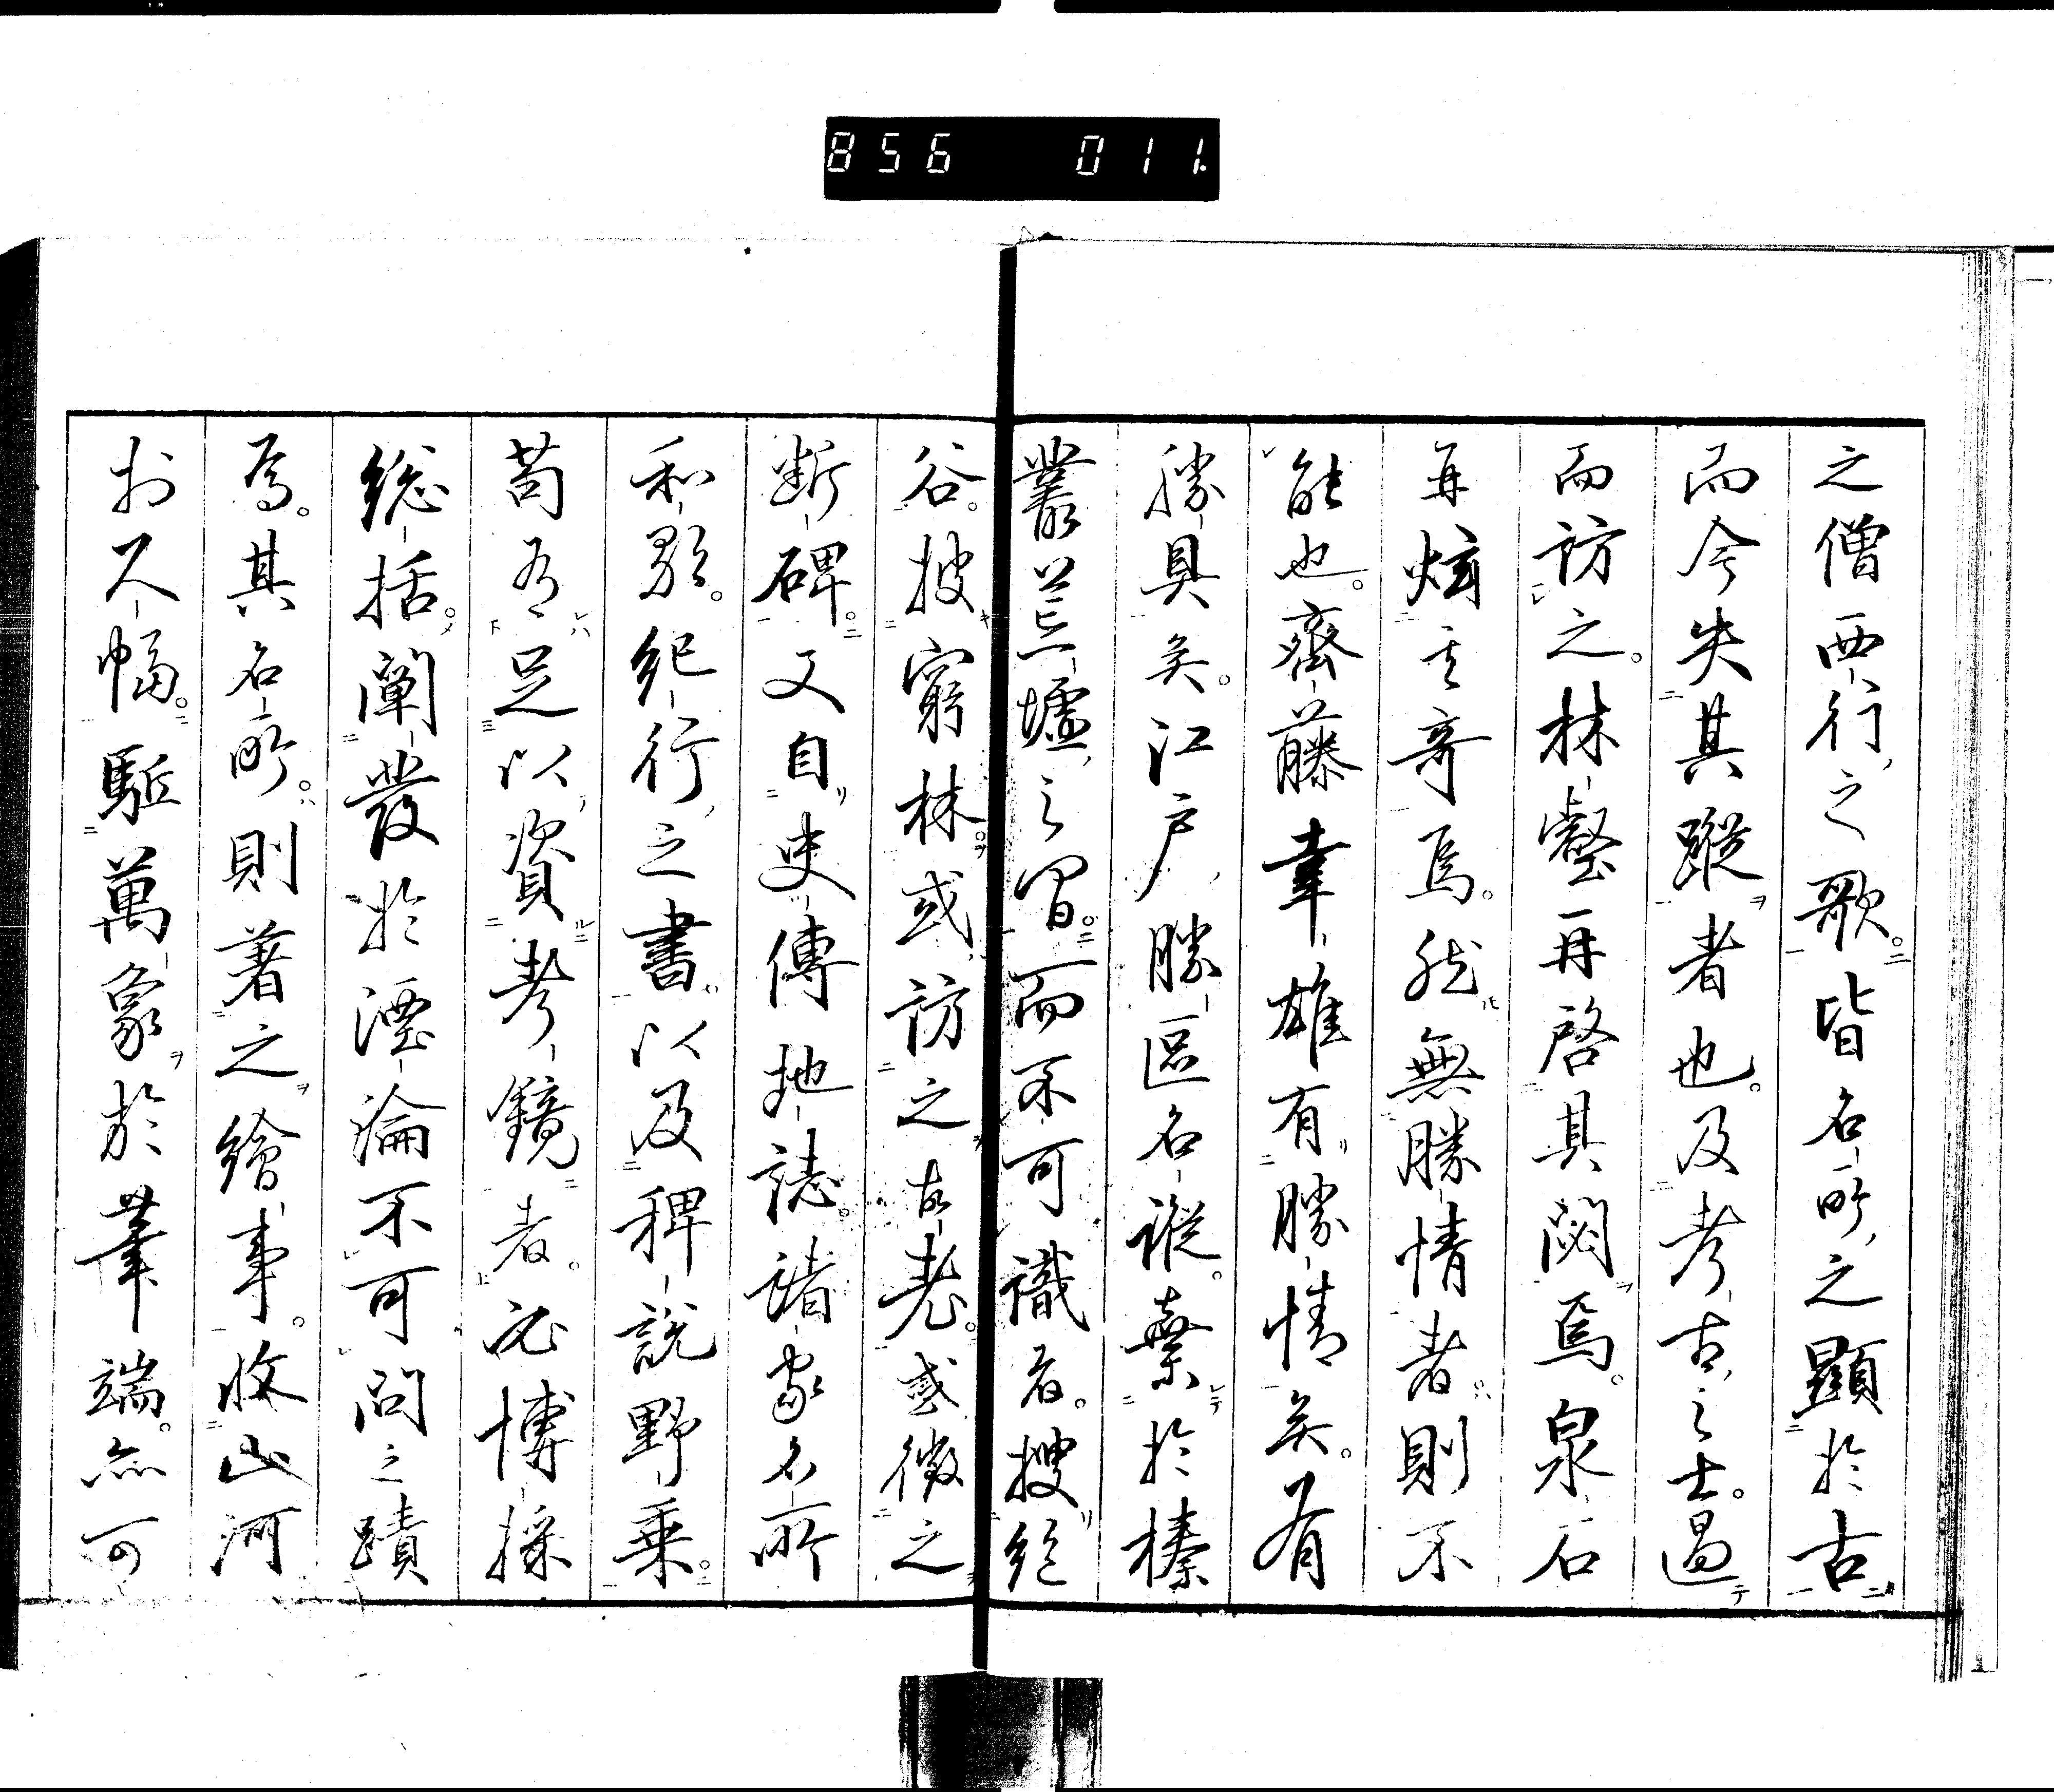 856 011
之僧西行之歌皆名所之顯於古
而今失其蹤者也及考古之士過
而訪之林壑再啓其閟焉泉石
再炫其奇焉然無勝情者則不
能也齋藤韋雄有勝情矣有
勝具矣江戸勝區名蹤棄於榛
叢荒墟之間而不可識者搜絕
谷披窮林或訪之故老或徵之
斷碑又自史傳地誌諸家名所
和歌紀行之書以及稗説野乘
苟有足以資考鏡者必博採
総括闡發於湮淪不可問之蹟
焉其名所則著之繪事收山河
於尺幅駈萬象於筆端亦可